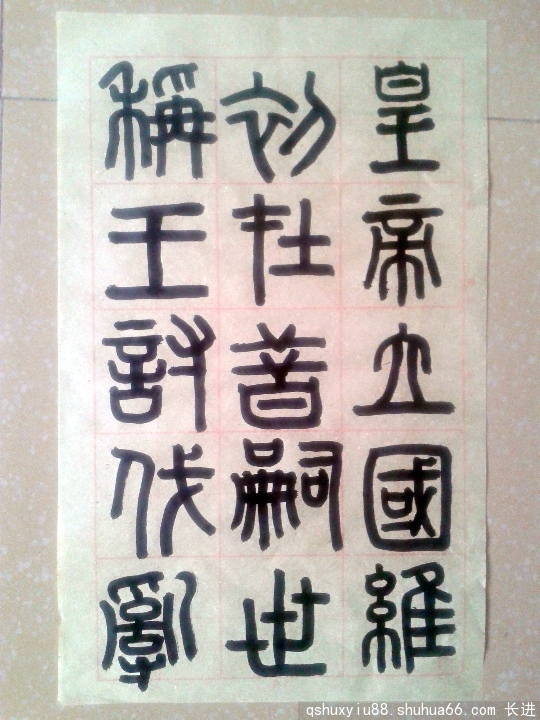 皇帝立國維
初在昔嗣世
稱王討伐亂
qshuxyiu88.shuhua66.com 长进